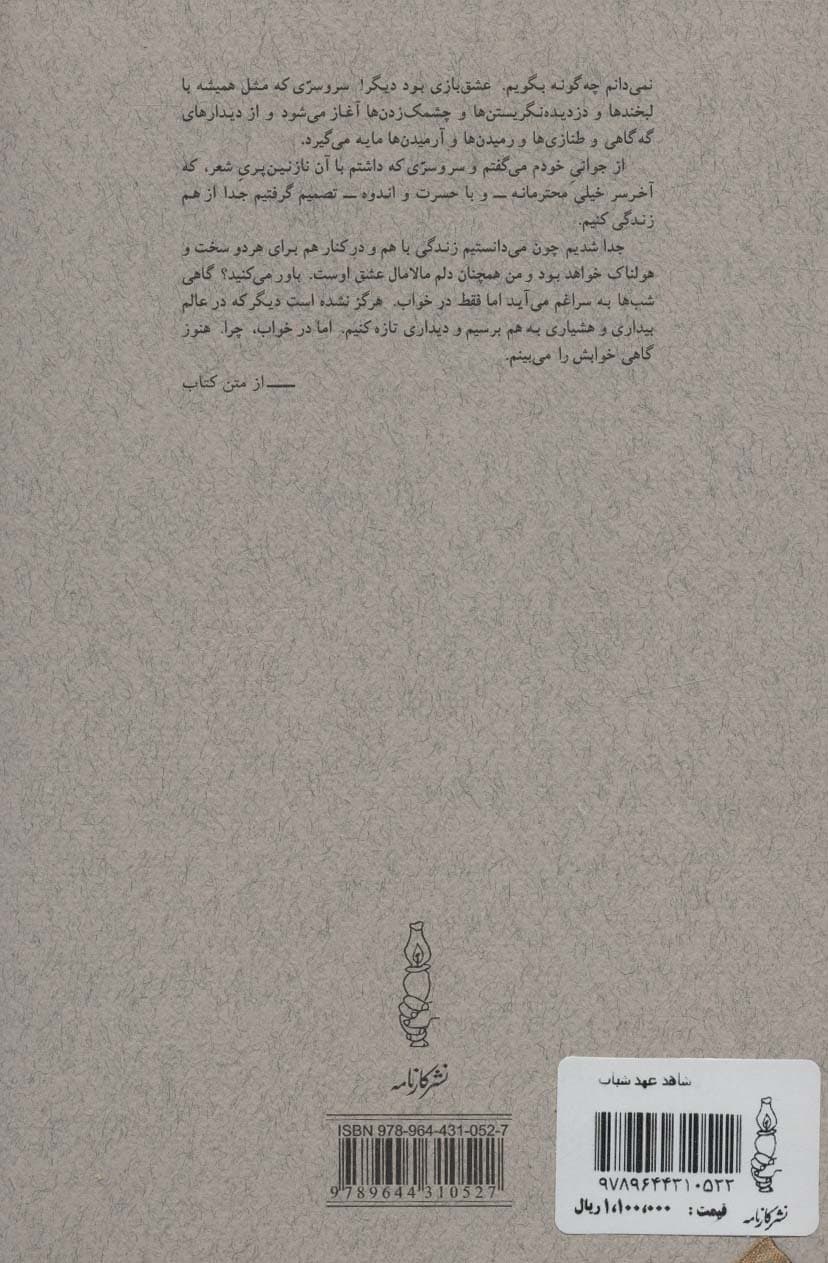 نمی‌دانم چه‌گونه بگویم. عشق‌بازی بود دیگر! سروسرّی که مثل همیشه با
لبخندها و دزدیده‌نگریستن‌ها و چشمک‌زدن‌ها آغاز می‌شود و از دیدارهای
گه‌گاهی و طنازی‌ها و رمیدن‌ها و آرمیدن‌ها مایه می‌گیرد.
از جوانیِ خودم می‌گفتم و سروسرّی که داشتم با آن نازنین‌پریِ شعر، که
آخرسر خیلی محترمانه ــ و با حسرت و اندوه ــ تصمیم گرفتیم جدا از هم
زندگی کنیم.
جدا شدیم چون می‌دانستیم زندگی با هم و در کنار هم برای هردو سخت و
هولناک خواهد بود و من همچنان دلم مالامال عشق اوست. باور می‌کنید؟ گاهی
شب‌ها به سراغم می‌آید اما فقط در خواب. هرگز نشده است دیگر که در عالم
بیداری و هشیاری به هم برسیم و دیداری تازه کنیم. اما در خواب، چرا. هنوز
گاهی خوابش را می‌بینم.
ــــ از متن کتاب
نشر کارنامه
ISBN 978-964-431-052-7
9 789644 310527
شاهد عهد شباب
۹۷۸۹۶۴۴۳۱۰۵۲۲
قیمت : ۱،۱۰۰،۰۰۰ ریال
نشر کارنامه